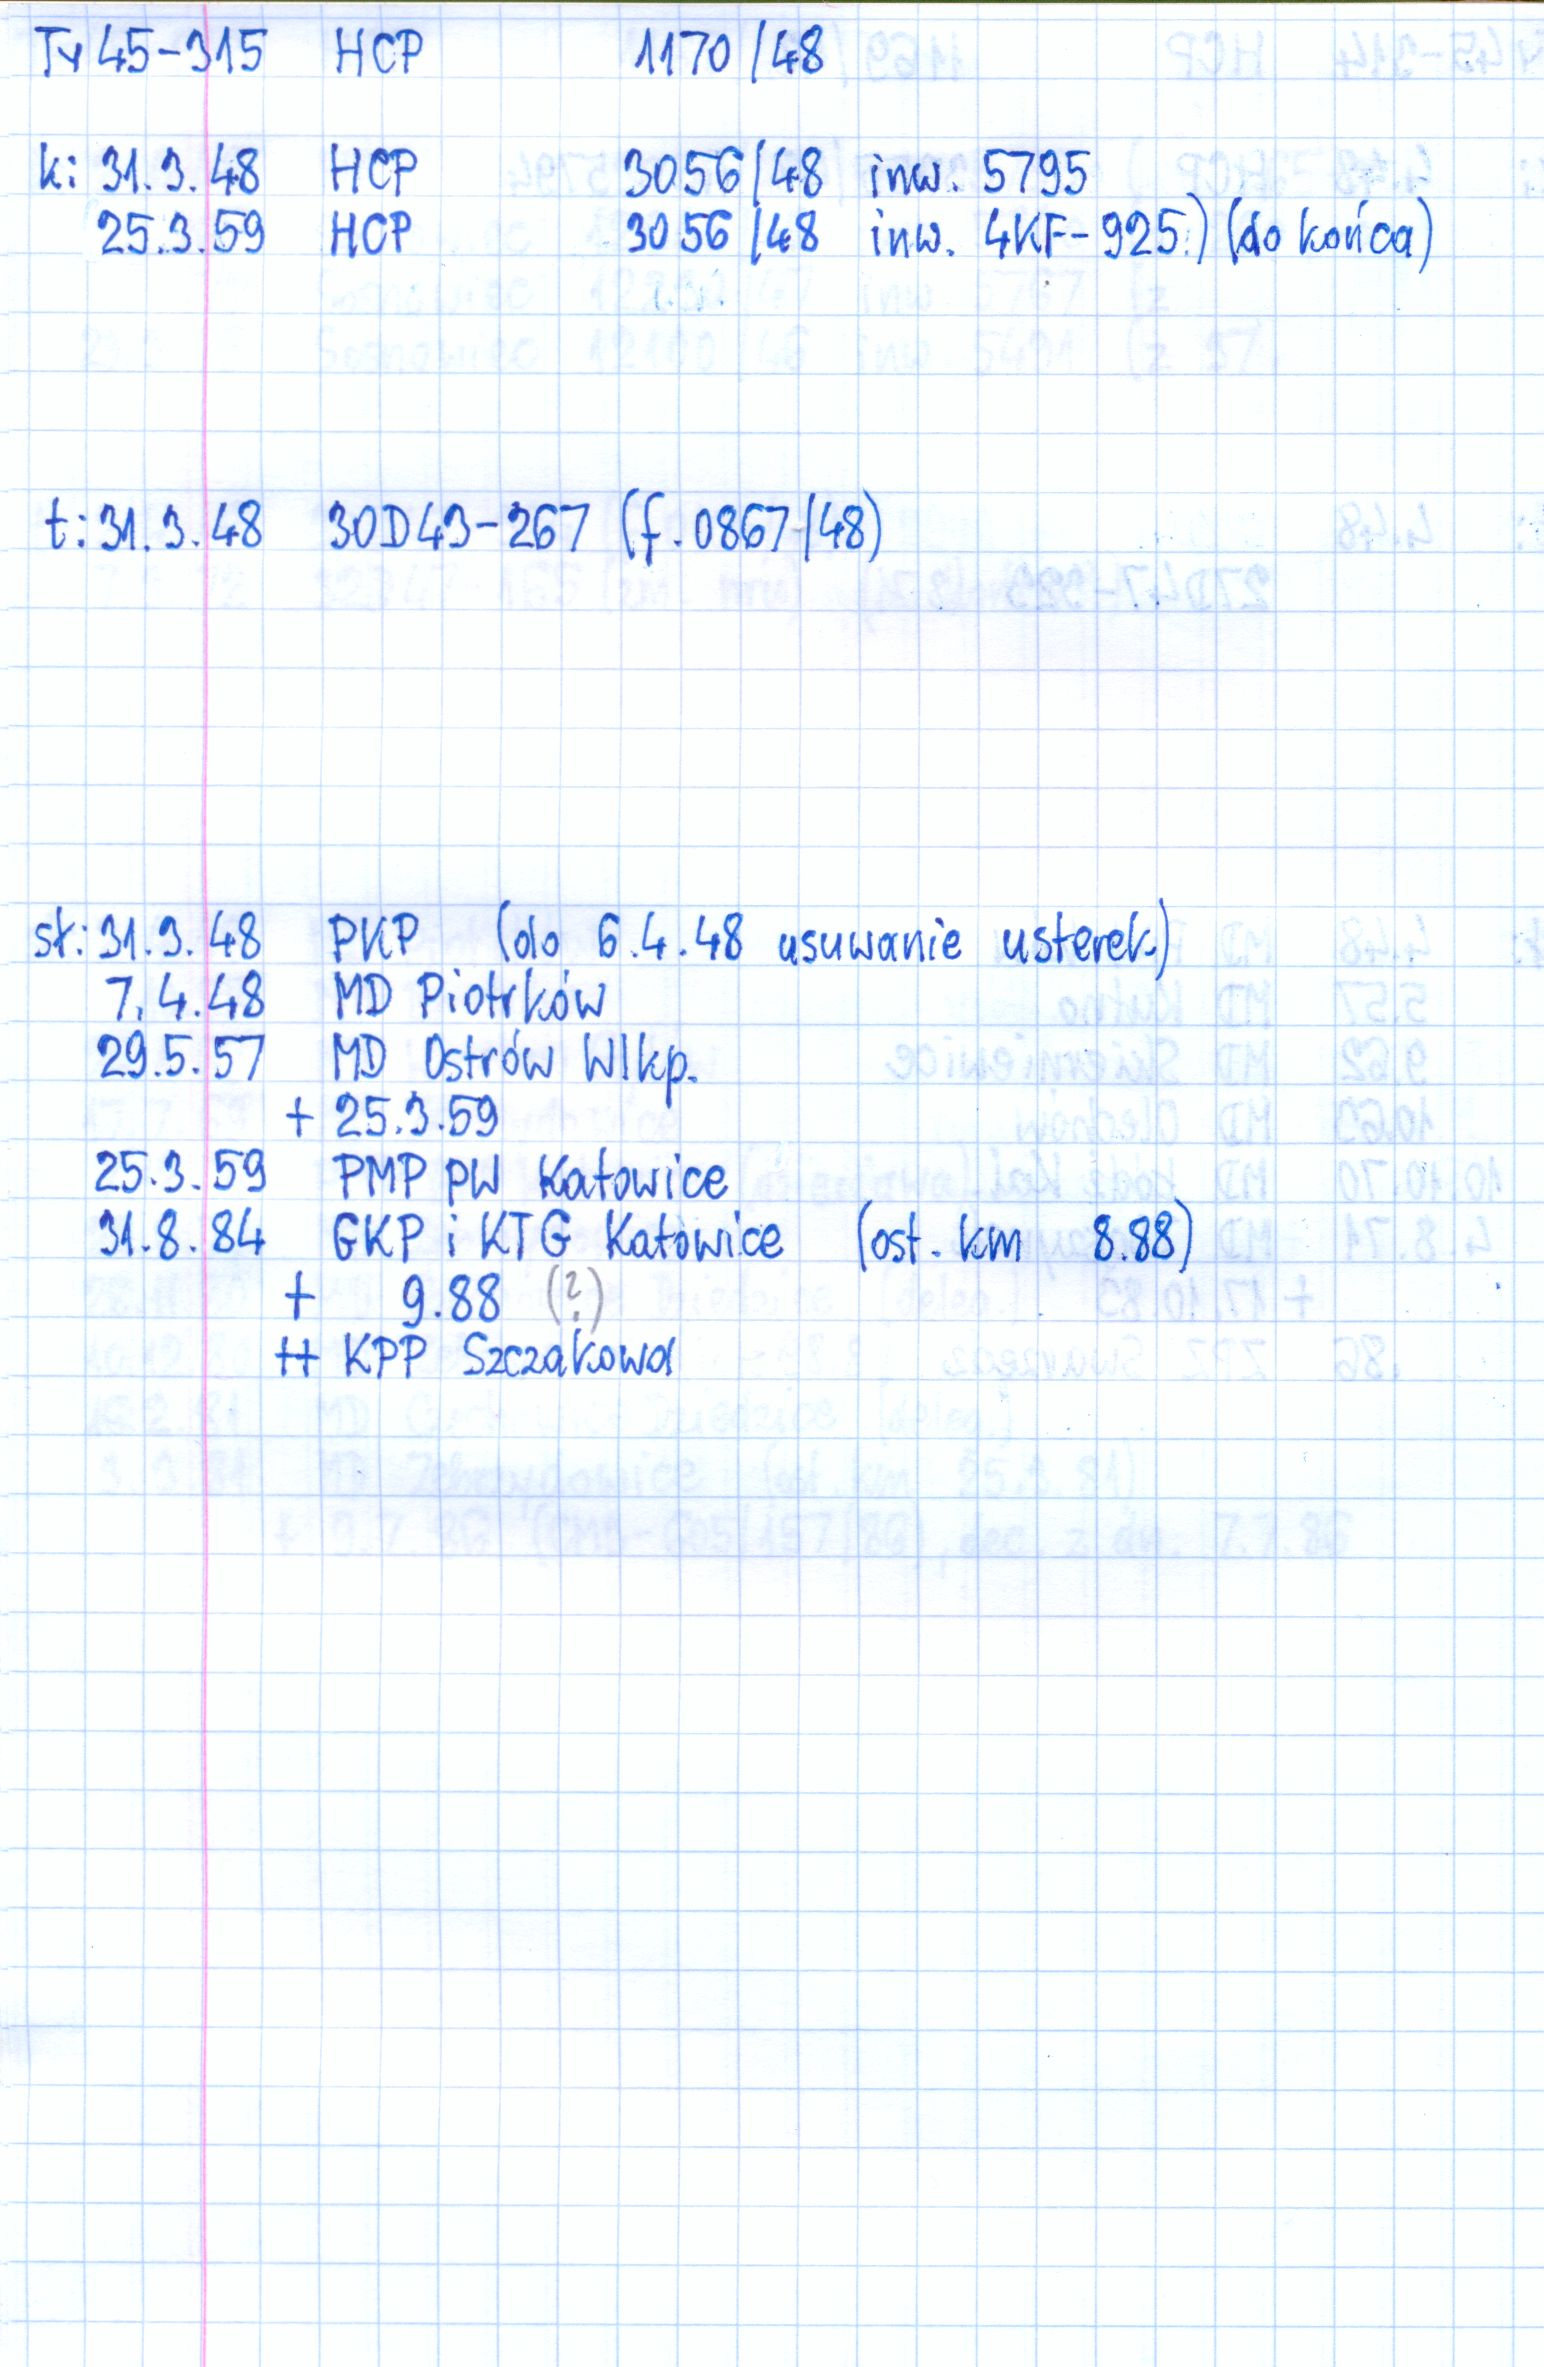 Ty45-315 HCP 1170/48
k: 31.3.48 HCP 3056/48 inw. 5795
25.3.59 HCP 3056/48 inw. 4KF-925.) (do końca)
t: 31.3.48 30D43-267 (f. 0867/48)
sł: 31.3.48 PKP (do 6.4.48 usuwanie usterek)
7.4.48 MD Piotrków
29.5.57 MD Ostrów Wlkp.
+ 25.3.59
25.3.59 PMP PW Katowice
31.8.84 GKP i KTG Katowice (ost. km 8.88)
+ 9.88 (?)
++ KPP Szczakowa